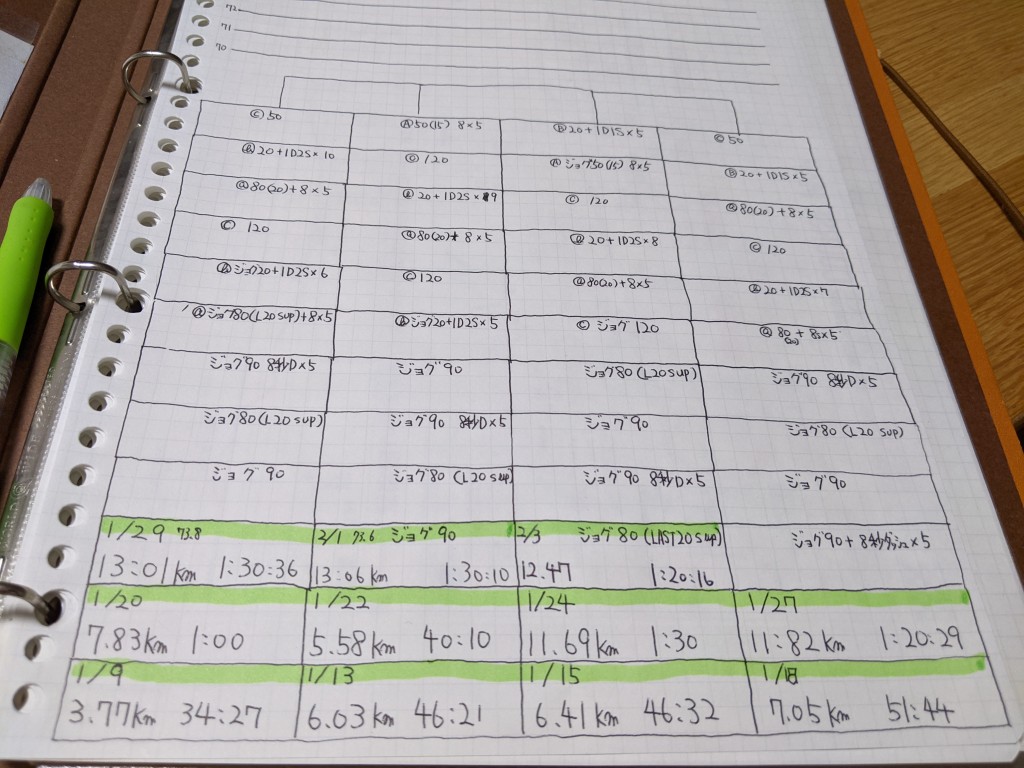 72
71
70
Ⓒ50 Ⓐ50(15) 8×5 Ⓑ20+1D1S×5 Ⓒ50
Ⓑ20+1D2S×10 Ⓒ120 Ⓐジョグ50(15) 8×5 Ⓑ20+1D1S×5
Ⓐ80(20)+8×5 Ⓑ20+1D2S×9 Ⓒ120 Ⓐ80(20)+8×5
Ⓒ120 Ⓐ80(20)+8×5 Ⓑ20+1D2S×8 Ⓒ120
Ⓑジョグ20+1D2S×6 Ⓒ120 Ⓐ80(20)+8×5 Ⓑ20+1D2S×7
Ⓐジョグ80(L20sup)+8×5 Ⓑジョグ20+1D2S×5 Ⓒジョグ120 Ⓐ80(20)+8s×5
ジョグ90 8秒D×5 ジョグ90 ジョグ80(L20sup) ジョグ90 8秒D×5
ジョグ80(L20sup) ジョグ90 8秒D×5 ジョグ90 ジョグ80(L20sup)
ジョグ90 ジョグ80(L20sup) ジョグ90 8秒D×5 ジョグ90
1/29 73.8 2/1 73.6 ジョグ90 2/3 ジョグ80(LAST20sup) ジョグ90+8秒ダッシュ×5
13:01km 1:30:36 13:06km 1:30:10 12.47 1:20:16
1/20 1/22 1/24 1/27
7.83km 1:00 5.58km 40:10 11.69km 1:30 11:82km 1:20:29
1/9 1/13 1/15 1/18
3.77km 34:27 6.03km 46:21 6.41km 46:32 7.05km 51:44